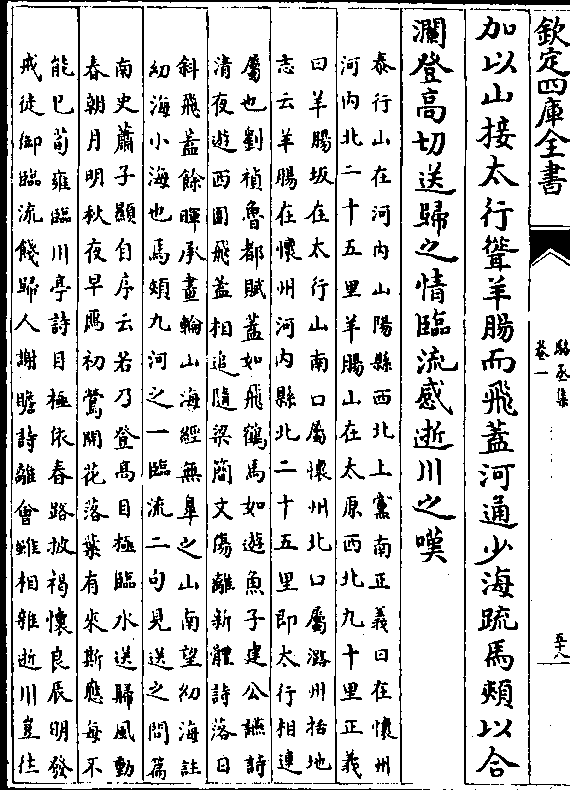 欽定四庫全書
駱丞集
卷一
五十八
加以山接太行聳羊腸而飛蓋河通少海疏馬頰以合
瀾登高切送歸之情臨流感逝川之嘆
泰行山在河內山陽縣西北上黨南正義曰在懷州
河內北二十五里羊腸山在太原西北九十里正義
曰羊腸坂在太行山南口屬懷州北口屬潞州括地
志云羊腸在懷州河內縣北二十五里即太行相連
屬也劉禎魯都賦蓋如飛鶴馬如遊魚子建公讌詩
清夜遊西園飛蓋相追隨梁簡文傷離新體詩落日
斜飛蓋餘暉承畫輪山海經無臯之山南望幼海註
幼海小海也馬頰九河之一臨流二句見送之問篇
南史蕭子顯自序云若乃登高目極臨水送歸風動
春朝月明秋夜早鴈初鶯開花落葉有來斯應每不
能已荀雍臨川亭詩目極依春路披褐懷良辰明發
戒徒御臨流餞歸人謝瞻詩離會雖相雜逝川豈往